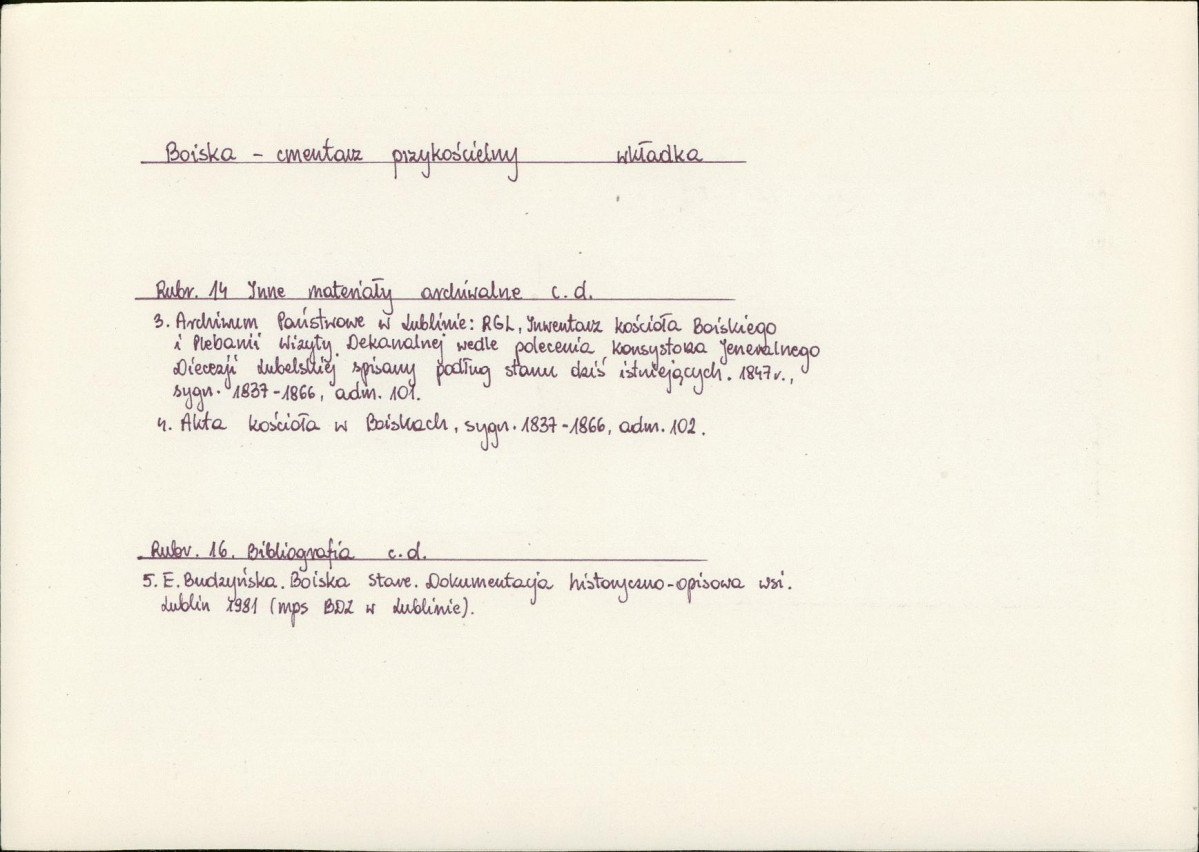 Boiska - cmentarz przykościelny wkładka
Rubr. 14 Inne materiały archiwalne c.d.
3. Archiwum Państwowe w Lublinie: RGL, Inwentarz kościoła Boiskiego
i Plebanii Wizyty Dekanalnej wedle polecenia konsystorza Jeneralnego
Diecezji Lubelskiej spisany podług stanu dziś istniejących. 1847r.,
sygn. 1837-1866, adm. 101.
4. Akta kościoła w Boiskach, sygn. 1837-1866, adm. 102.
Rubr. 16. Bibliografia c.d.
5. E. Budzyńska. Boiska Stare. Dokumentacja historyczno-opisowa wsi.
Lublin 1981 (mps BDZ w Lublinie).